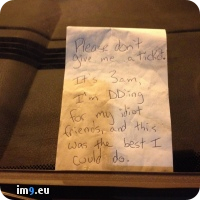 Please don't
give me a ticket.
It's 3am,
I'm DDing
for my idiot
friends, and this
was the best I
could do.
im9.eu